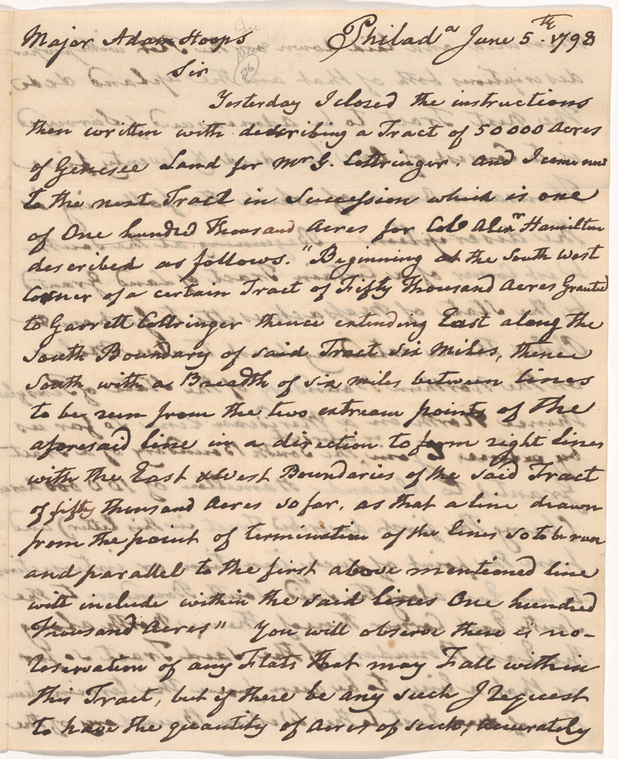 Major Adam Hoops Philada June 5th 1798
Sir
26
Yesterday I closed the instructions
then written with describing a Tract of 50000 Acres
of Genesee Land for Mr G. Cottringer, and I come now
to the next Tract in Succession which is one
of One hundred Thousand Acres for Colo Alexr Hamilton
described as follows. "Beginning at the South West
Corner of a certain Tract of Fifty thousand Acres Granted
to Garrett Cottringer thence extending East along the
South Boundary of said Tract Six Miles, thence
South with a Breadth of six miles between lines
to be run from the two extream points of the
aforesaid line in a direction to form right lines
with the East & West Boundaries of the said Tract
of fifty thousand Acres so far, as that a line drawn
from the point of termination of the lines so to be run
and parallel to the first above mentioned line
will include within the said lines One hundred
Thousand Acres" You will observe there is no-
reservation of any Flats that may Fall within
this Tract, but if there be any such I request
to have the quantity of Acres of such, accurately